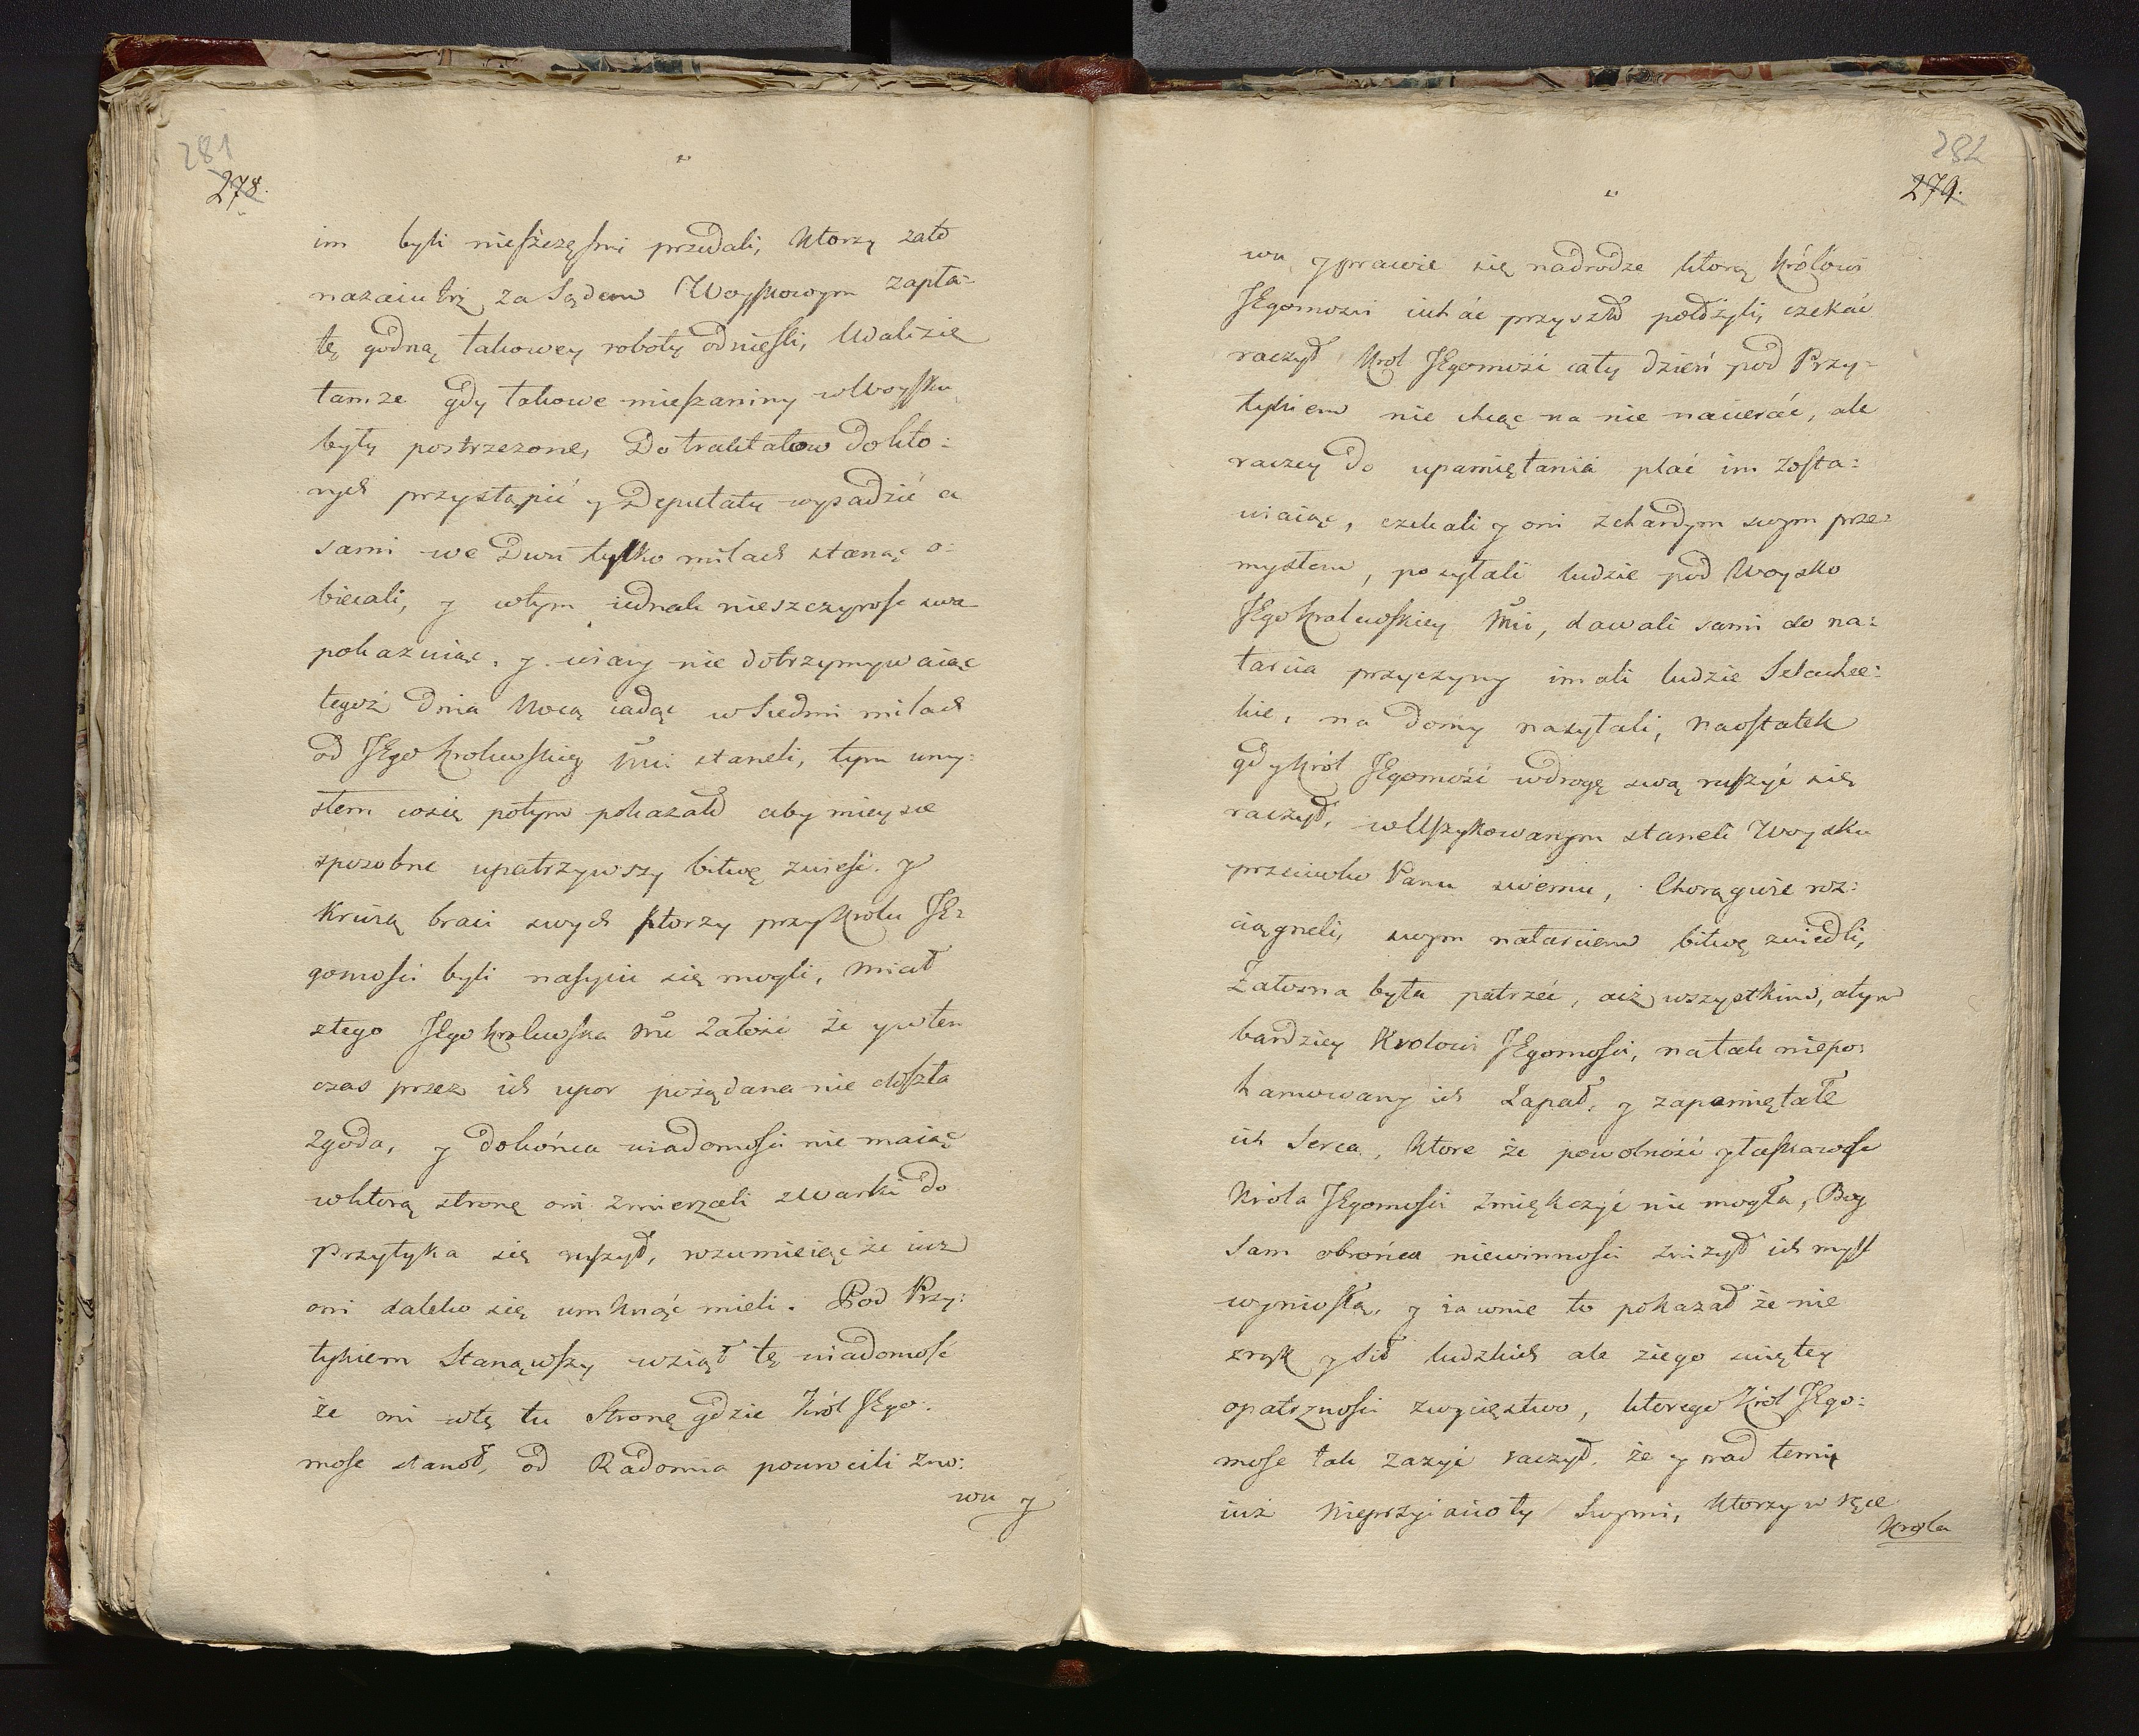 281
278.
im byli nieszczęsni przedali, Ktorzy zatō
nazaiutrz za Sądem Woyskowym zapła-
tę godną takowey roboty odniesli, Walizie
tamze gdy takowe mieszaniny w Woysku
były postrzezone, Do traktatow Dokto:
rych przystąpić y Deputaty wysadzić a
sami we Dwu tylko milach stanąć o:
biecali, y wtym iednak nieszczyrość swa
pokazuiąc, y wiary nie dotrzymywaiąc
tegoż Dnia Nocą iadąc w Siedmi milach
od JEgo Krolewskiey Mci staneli, tym umy:
słem cosię potym pokazało aby mieysce
sposobne upatrzywszy bitwę zwieść. y
Krwią braci swych ktorzy przy Krolu JE:
gomości byli nasycić się mogli, Miał
ztego JEgo Krolewska Mć Załość że y wten
czas przez ich upor pożądana nie doszła
Zgoda, y Dokońca wiadomości nie maiąc
wktorą stronę oni zmierzali z Warki do
Przytyka się ruszył, rozumieiąc że iuż
oni daleko się umknąć mieli. Pod Przy:
tykiem Stanąwszy wziął tę wiadomość
że oni wtę tu Stronę gdzie Król JEgo:
mość stanoł, od Radomia powrocili zno:
wu y
282
279.
wu y prawie się nadrodze ktorą Królowi
JEgomości iechać przyszło położyli, czekać
raczył Krol JEgomość cały dzień pod Przy-
tykiem nie chcąc na nie nacierać, ale
raczey do upamiętania plac im Zosta:
wiaiąc, czekali y oni zchardym swym prze:
mysłem, posyłali ludzie pod Woysko
JEgo Krolewskiey Mci, dawali sami do na:
tarcia przyczyny imali ludzie Selachec:
kie, na domy nasyłali, Naostatek
gdy Król JEgomość wdrogę swą ruszyć się
raczył, w Uszykowanym staneli Woysku
przeciwko Panu swemu, Chorągwie roz:
ciągneli, swym natarciem bitwę zwiedli,
Załosna była patrzeć, aiż wszystkim, atym
bardziey Krolowi JEgomości, na tak niepo:
hamowany ich Zapał, y zapamiętałe
ich Serca, Ktore że powolność y łaskawość
Króla JEgomości zmiękczyć nie mogła, Bog
Sam obrońca niewinności zniżył ich myśl
wyniosłą, y iawnie to pokazał że nie
zrąk y Sił ludzkich ale ziego swiętey
opatrzności zwycięstwo, ktorego Król JEgo:
mość tak Zazyć raczył, że y nad temi
iuż Nieprzyiacioły Swymi, Ktorzy w ręce
Krola